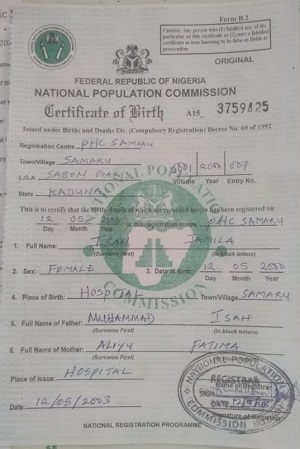 Form B.2
Confirm: Any person who (1) falsified any of the
particular on this certificate or (2) uses a falsified
certificate as true knowing to be false as liable to
prosecution
ORIGINAL
FEDERAL REPUBLIC OF NIGERIA
NATIONAL POPULATION COMMISSION
Certificate of Birth A15 3759425
Issued under Births and Deaths Etc. (Compulsory Registration) Decree No. 69 of 1992
Registration Centre PHC SAMARU
Town/Village SAMARU
L.G.A SABON GARI 0001 2000 007
Volume Year Entry No.
State KADUNA
NATIONAL POPULATION COMMISSION
This is to certify that the birth, details of which are recorded herein has been registered on
12 05 at this registration centre PHC SAMARU
Day Month Year
1. Full Name: ISAH JAMILA
(Surname First) (in block letters)
2. Sex: FEMALE 3. Date of Birth: 12 05 2000
Day Month Year
4. Place of Birth: HOSPITAL Town/Village SAMARU
5. Full Name of Father: MUHAMMAD ISAH
(Surname First) (in block letters)
6. Full Name of Mother: ALIYU FATIMA
(Surname First) (in block letters)
Place of Issue: HOSPITAL
Date: 12/05/2003
NATIONAL POPULATION COMMISSION
REGISTRAR
SIGN
DATE
Name of Registrar
Signature of Registrar
NATIONAL REGISTRATION PROGRAMME